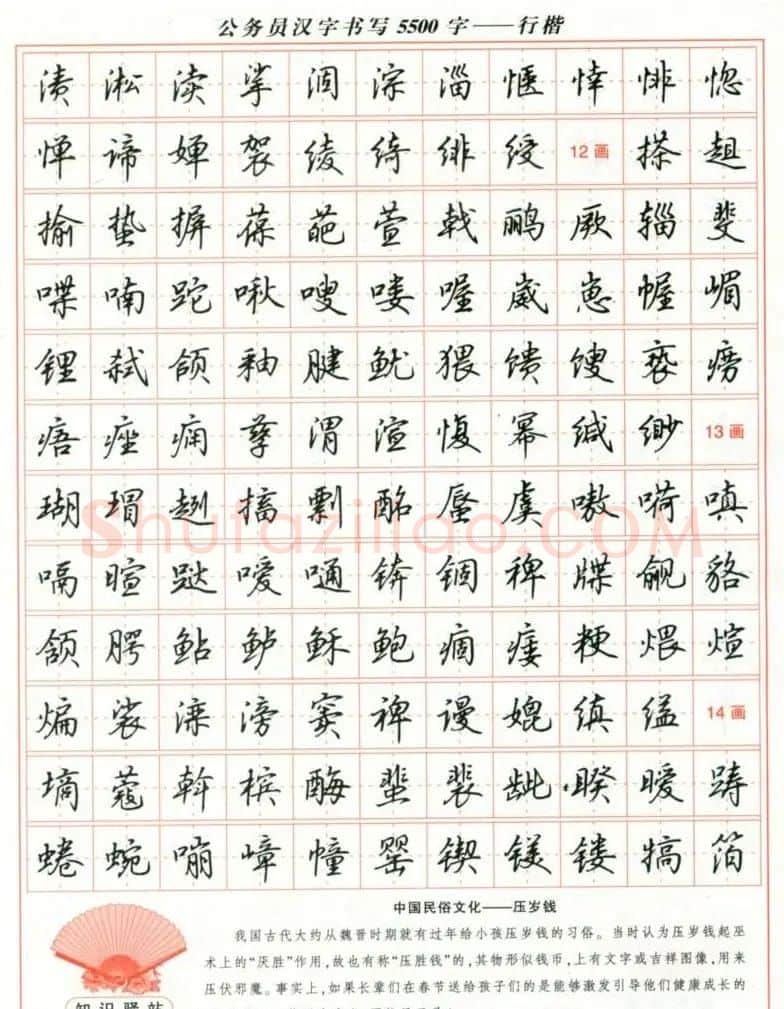 公务员汉字书写5500字——行楷
渍 淞 渎 挲 涸 淙 淄 惬 悻 悱 惚
惮 谛 婵 袈 绫 绮 绯 绶 12画 搽 趄
揄 蛰 摒 葆 葩 萱 戟 鹂 厥 辎 斐
喋 喃 跎 啾 嗖 喽 喔 崴 崽 幄 嵋
锂 弑 颌 釉 腱 鱿 猥 馈 馊 亵 痨
痦 痤 痫 孳 渭 渲 愎 幂 缄 缈 13画
瑚 瑁 趔 搞 剽 酩 蜃 虞 嗷 嗬 嗔
嗝 暄 跶 嗳 嗵 锛 锢 稗 牒 觎 貉
颔 腭 鲇 鲈 稣 鲍 痼 瘘 粳 煨 煊
煸 裟 滦 滂 窦 裨 谩 媲 缜 缢 14画
墒 蔻 斡 槟 酶 蜚 裴 龇 睽 暧 踌
蜷 蜿 嘣 嶂 幢 罂 锲 镁 镂 犒 箔
Shufaziliao.COM
中国民俗文化——压岁钱
我国古代大约从魏晋时期就有过年给小孩压岁钱的习俗。当时认为压岁钱起巫
术上的“厌胜”作用，故也有称“压胜钱”的，其物形似钱币，上有文字或吉祥图像，用来
压伏邪魔。事实上，如果长辈们在春节送给孩子们的是能够激发引导他们健康成长的
知识驿站